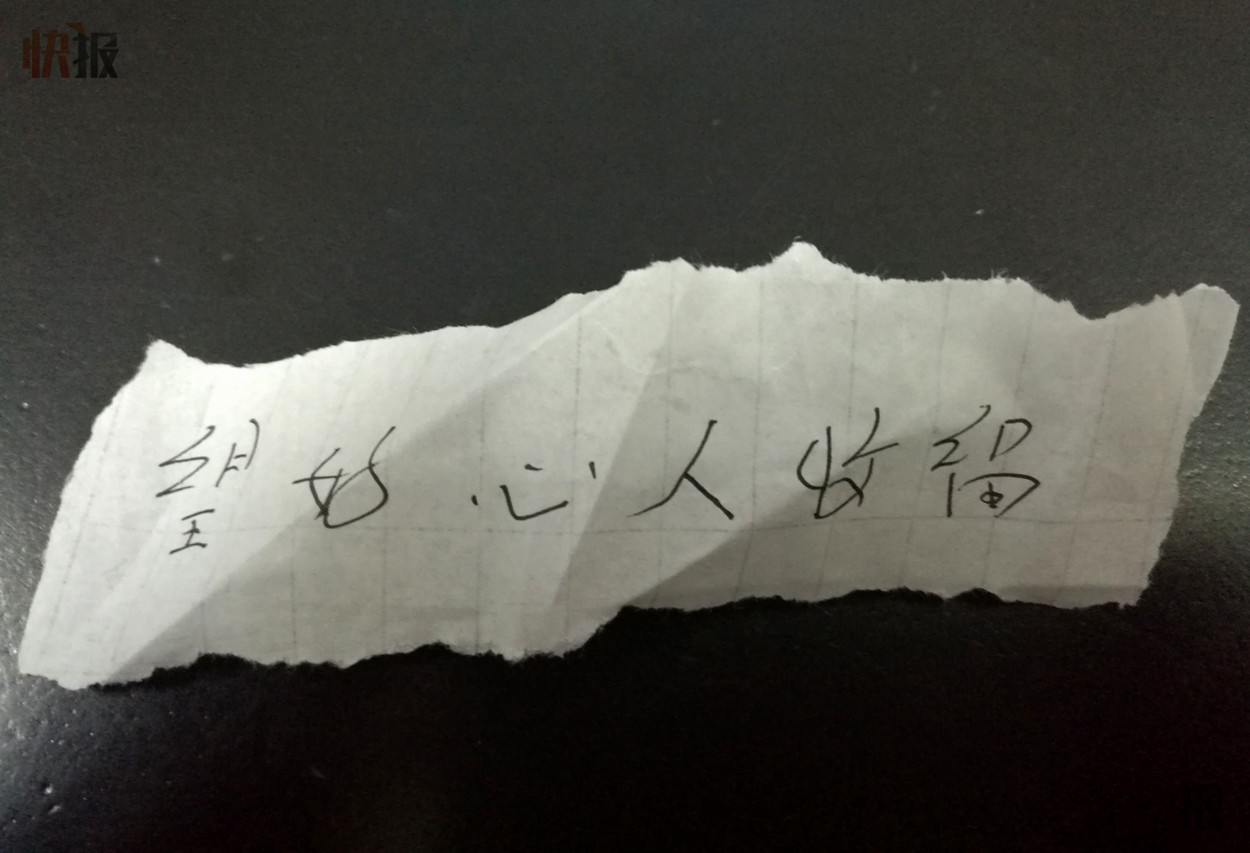 快报
望好心人收留